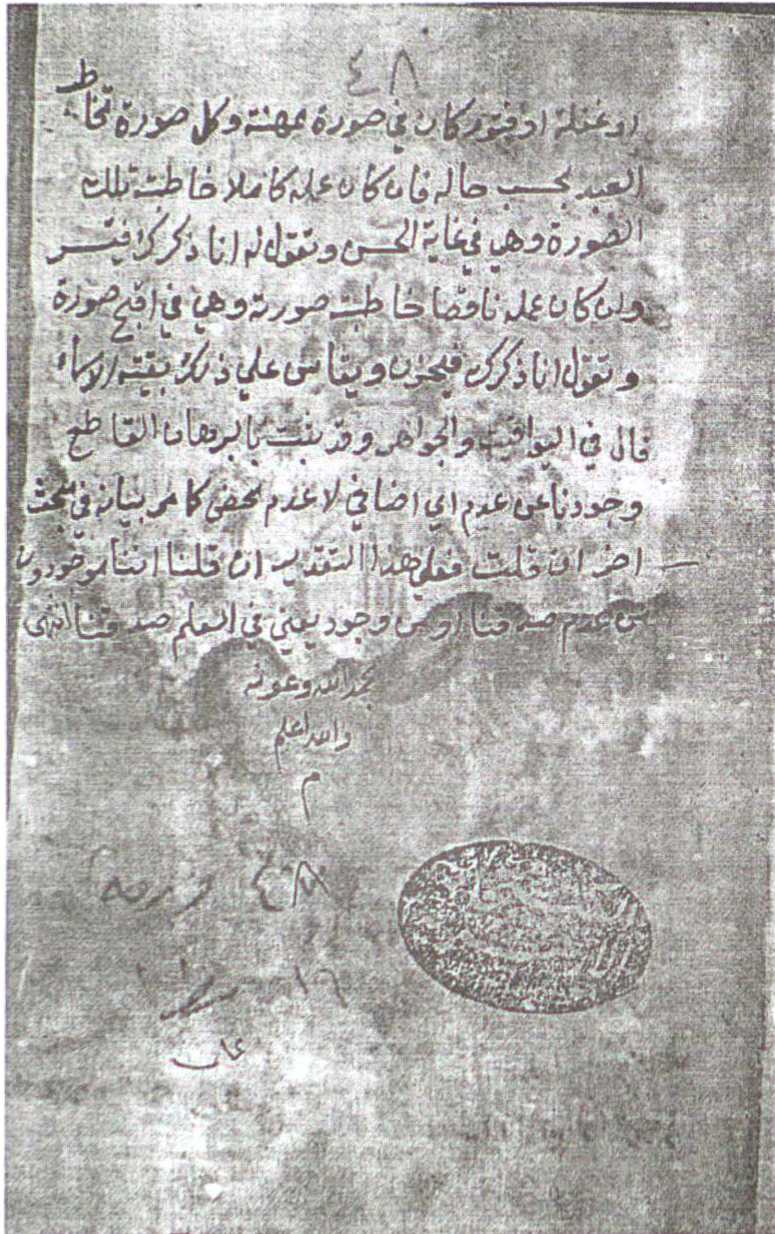 ٤٨
او غفلة او فتور كان في صورة ممهنة وكل صورة تخاطب
العبد بحسب حاله فان كان عمله كاملا خاطبته تلك
الصورة وهي في غاية الحسن وتقول له انا ذكرك فيسر
وان كان عمله ناقصا خاطبته صورته وهي في اقبح صورة
وتقول انا ذكرك فيحزن ويقاس على ذلك بقية الاسماء
قال في اليواقيت والجواهر وقد ثبت بالبرهان القاطع
وجودنا عن عدم اي اضافي لا عدم محض كما مر بيانه في مبحث
اخر ان قلت فعلي هذا التقدير ان قلنا اننا موجودون
عن عدم صدقنا او عن وجود يعني في العلم صدقنا انتهى
بحمد الله وعونه
والله اعلم
م
٤٨ ورقة
١٦